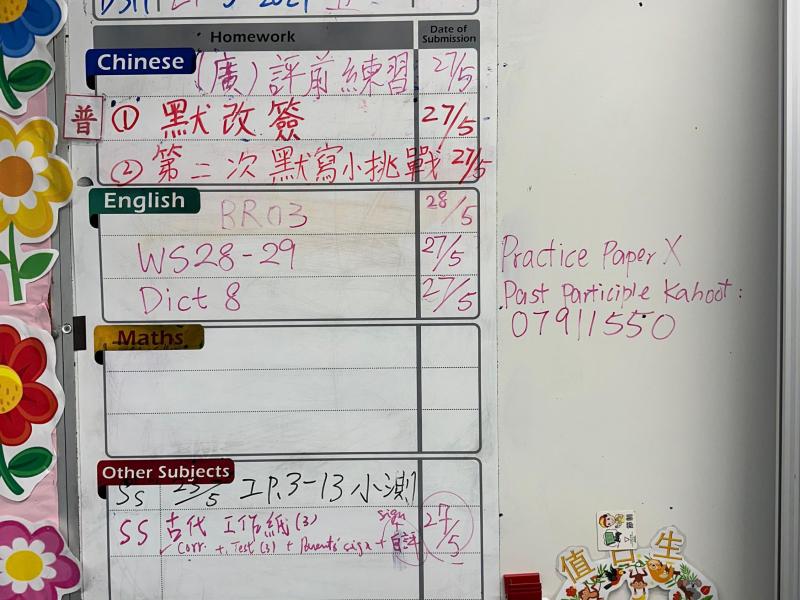 Homework
Date of Submission
Chinese
(廣)評前練習 27/5
普
① 默改簽 27/5
② 第二次默寫小挑戰 27/5
English
BR03 28/5
WS28-29 27/5
Dict 8 27/5
Practice Paper X
Past Participle Kahoot:
07911550
Maths
Other Subjects
SS 23/5 工P.3-13 小測
SS 古代工作紙(3) sign 27/5
✓ Corr. + Test(3) + Parents' sign + 自評
值日生